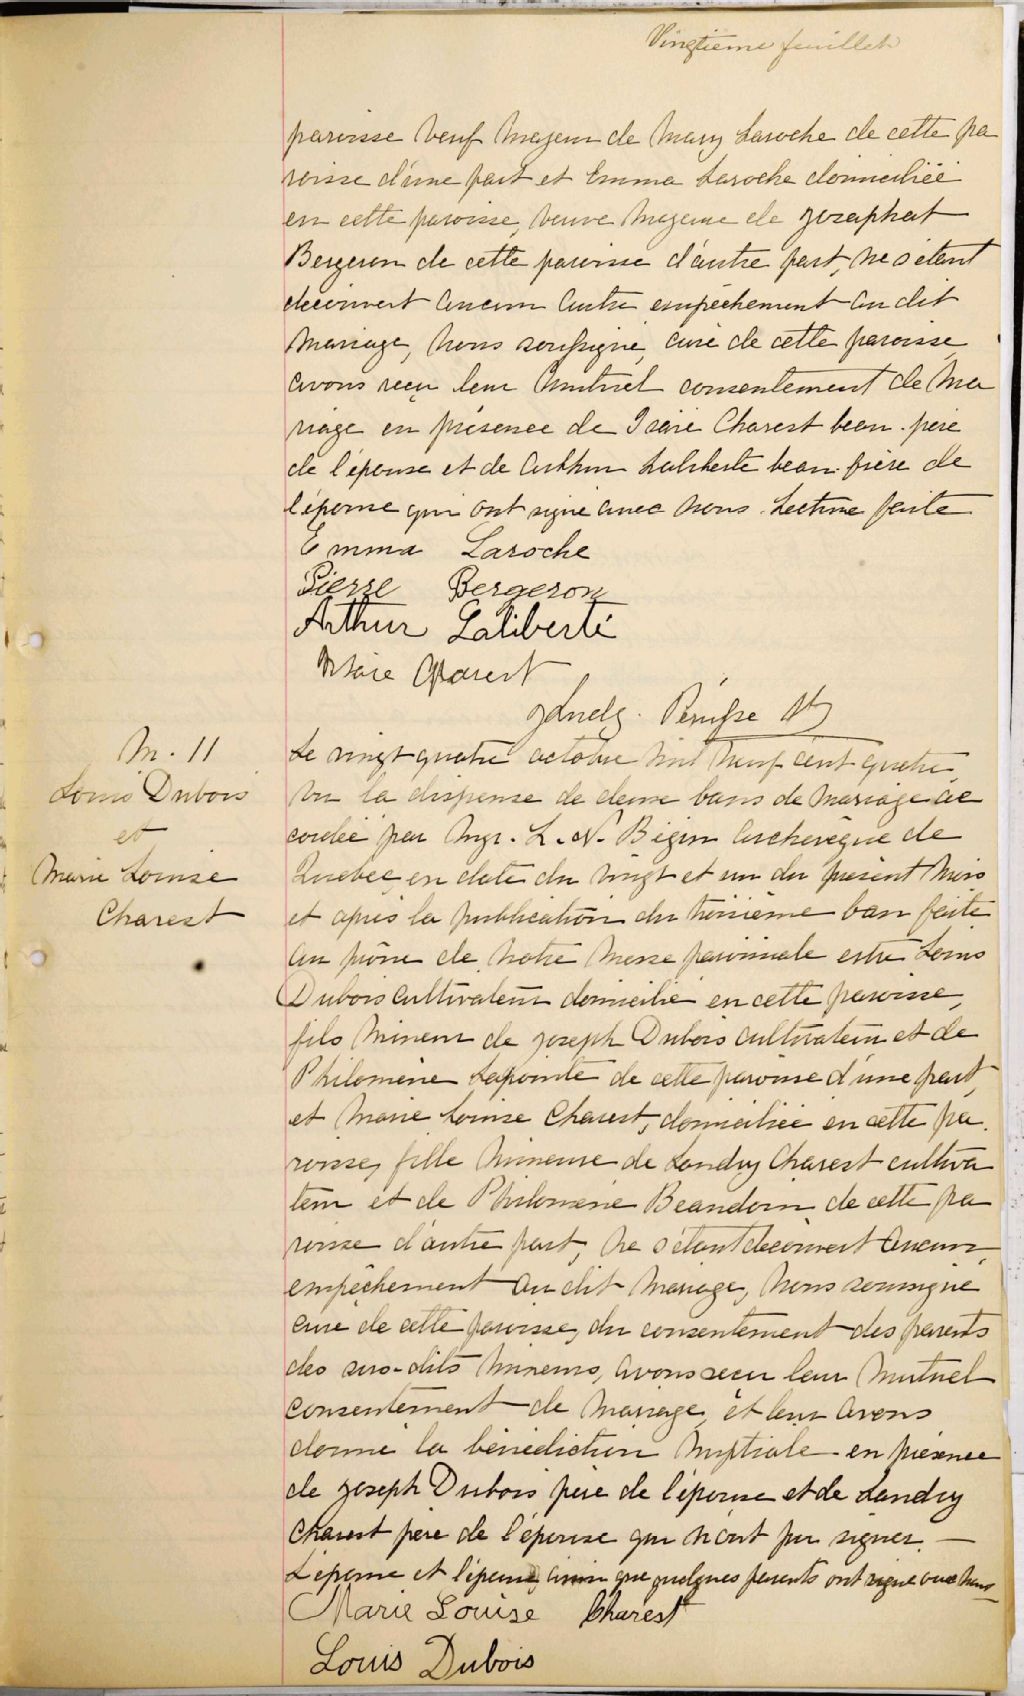 Vingtième feuillet
paroisse veuf majeur de Mary Laroche de cette pa
roisse d'une part et Emma Laroche domiciliée
en cette paroisse, veuve majeure de Josaphat
Bergeron de cette paroisse d'autre part, ne s'étant
découvert aucun autre empêchement au dit
mariage, nous soussigné, curé de cette paroisse
avons reçu leur mutuel consentement de ma
riage en présence de Isaïe Charest beau-père
de l'épouse et de Arthur Laliberté beau-frère de
l'épouse qui ont signé avec nous. Lecture faite
Emma Laroche
Pierre Bergeron
Arthur Laliberté
Isaïe Charest
Ptre
M. 11
Louis Dubois
et
Marie Louise
Charest
Le vingt quatre octobre mil neuf cent quatre,
vu la dispense de deux bans de mariage ac
cordée par Mgr. L. N. Bégin Archevêque de
Québec, en date du vingt et un du présent mois
et après la publication du troisième ban faite
au prône de notre messe paroissiale entre Louis
Dubois cultivateur domicilié en cette paroisse,
fils mineur de Joseph Dubois cultivateur et de
Philomène Lapointe de cette paroisse d'une part,
et Marie Louise Charest, domiciliée en cette pa
roisse, fille mineure de Landry Charest cultiva
teur et de Philomène Beaudoin de cette pa
roisse d'autre part, ne s'étant découvert aucun
empêchement au dit mariage, nous soussigné
curé de cette paroisse, du consentement des parents
des sus-dits mineurs, avons reçu leur mutuel
consentement de mariage, et leur avons
donné la bénédiction nuptiale en présence
de Joseph Dubois père de l'époux et de Landry
Charest père de l'épouse qui n'ont pu signer. —
L'époux et l'épouse, ainsi que quelques parents ont signé avec nous
Marie Louise Charest
Louis Dubois